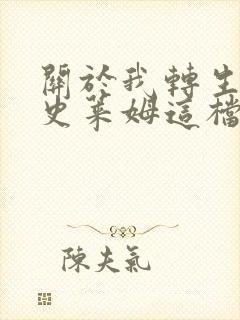 關於我轉生
史萊姆這檔
陳夫氣